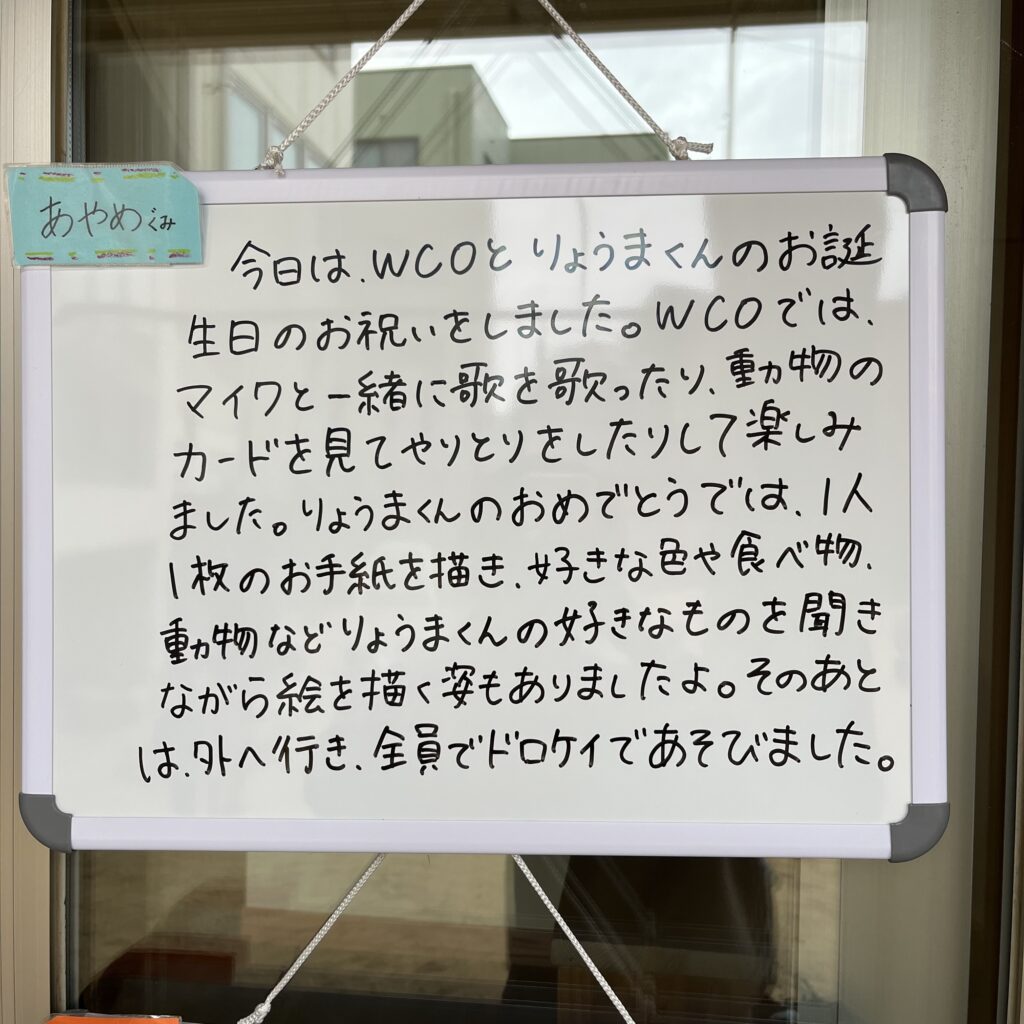 あやめぐみ
今日は、WCOとりょうまくんのお誕
生日のお祝いをしました。WCOでは、
マイワと一緒に歌を歌ったり、動物の
カードを見てやりとりをしたりして楽しみ
ました。りょうまくんのおめでとうでは、1人
1枚のお手紙を描き、好きな色や食べ物、
動物などりょうまくんの好きなものを聞き
ながら絵を描く姿もありましたよ。そのあと
は、外へ行き、全員でドロケイであそびました。